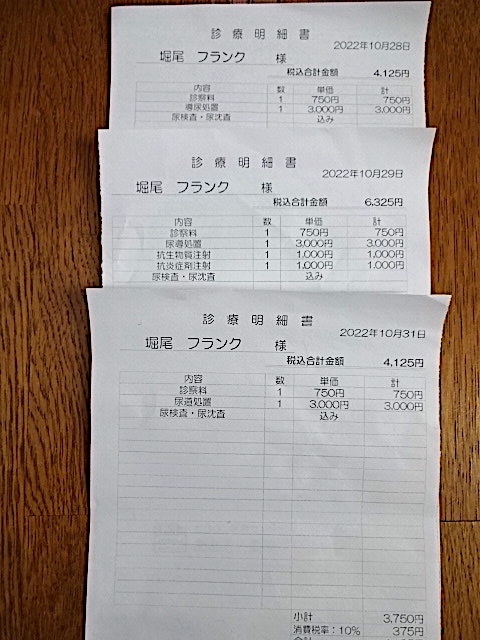 診療明細書
2022年10月28日
堀尾 フランク 様
税込合計金額 4,125円
内容 数 単価 計
診察料 1 750円 750円
導尿処置 1 3,000円 3,000円
尿検査・尿沈査 込み
診療明細書
2022年10月29日
堀尾 フランク 様
税込合計金額 6,325円
内容 数 単価 計
診察料 1 750円 750円
尿導処置 1 3,000円 3,000円
抗生物質注射 1 1,000円 1,000円
抗炎症剤注射 1 1,000円 1,000円
尿検査・尿沈査 込み
診療明細書
2022年10月31日
堀尾 フランク 様
税込合計金額 4,125円
内容 数 単価 計
診察料 1 750円 750円
尿道処置 1 3,000円 3,000円
尿検査・尿沈査 込み
小計 3,750円
消費税率：10% 375円